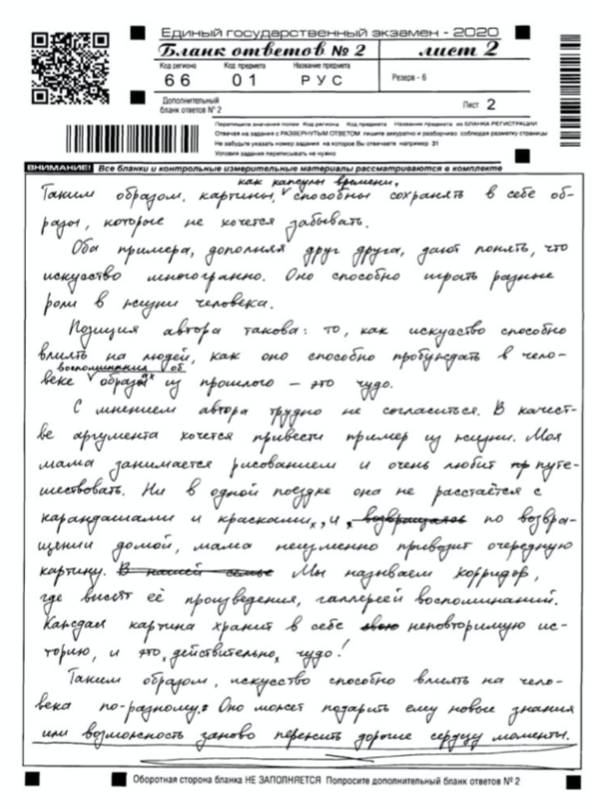 Единый государственный экзамен - 2020
Бланк ответов № 2 лист 2
Код региона Код предмета Название предмета
66 01 РУС Резерв - 6
Дополнительный бланк ответов № 2
Лист 2
Перепишите значения полей Код региона Код предмета Название предмета из БЛАНКА РЕГИСТРАЦИИ
Отвечая на задания с РАЗВЕРНУТЫМ ОТВЕТОМ пишите аккуратно и разборчиво соблюдая разметку страницы
Не забудьте указать номер задания на которое Вы отвечаете например 31
Условия задания переписывать не нужно
ВНИМАНИЕ! Все бланки и контрольные измерительные материалы рассматриваются в комплекте
как капсулы времени,
Таким образом, картины, способны сохранять в себе об-
разы, которые не хочется забывать.
Оба примера, дополняя друг друга, дают понять, что
искусство многогранно. Оно способно играть разные
роли в жизни человека.
Позиция автора такова: то, как искусство способно
влиять на людей, как оно способно пробуждать в чело-
воспоминания об
веке образах из прошлого – это чудо.
С мнением автора трудно не согласиться. В качест-
ве аргумента хочется привести пример из жизни. Моя
мама занимается рисованием и очень любит пр путе-
шествовать. Ни в одной поездке она не расстаётся с
карандашами и красками, и, возвращаясь по возвра-
щении домой, мама неизменно привозит очередную
картину. В нашей семье Мы называем корридор,
где висят её произведения, галлереей воспоминаний.
Каждая картина хранит в себе свою неповторимую ис-
торию, и это, действительно, чудо!
Таким образом, искусство способно влиять на чело-
века по-разному. Оно может подарить ему новые знания
или возможность заново пережить дорогие сердцу моменты.
Оборотная сторона бланка НЕ ЗАПОЛНЯЕТСЯ Попросите дополнительный бланк ответов № 2